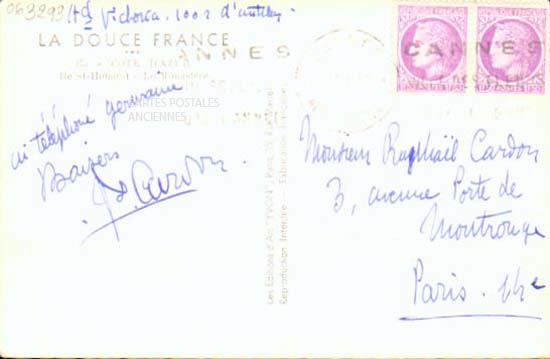 063293
Hd Victoria. 1002 d'antibes
LA DOUCE FRANCE
CÔTE D'AZUR
Ile St-Honorat - Le Monastère
CANNES
CANNES
CARTES POSTALES
ANCIENNES
ai téléphoné germaine
Baisers
Cardon
Les Editions d'Art "YVON"
Reproduction Interdite - Fabrication Française
Monsieur Raphaël Cardon
3, avenue Porte de
Montrouge
Paris. 14e